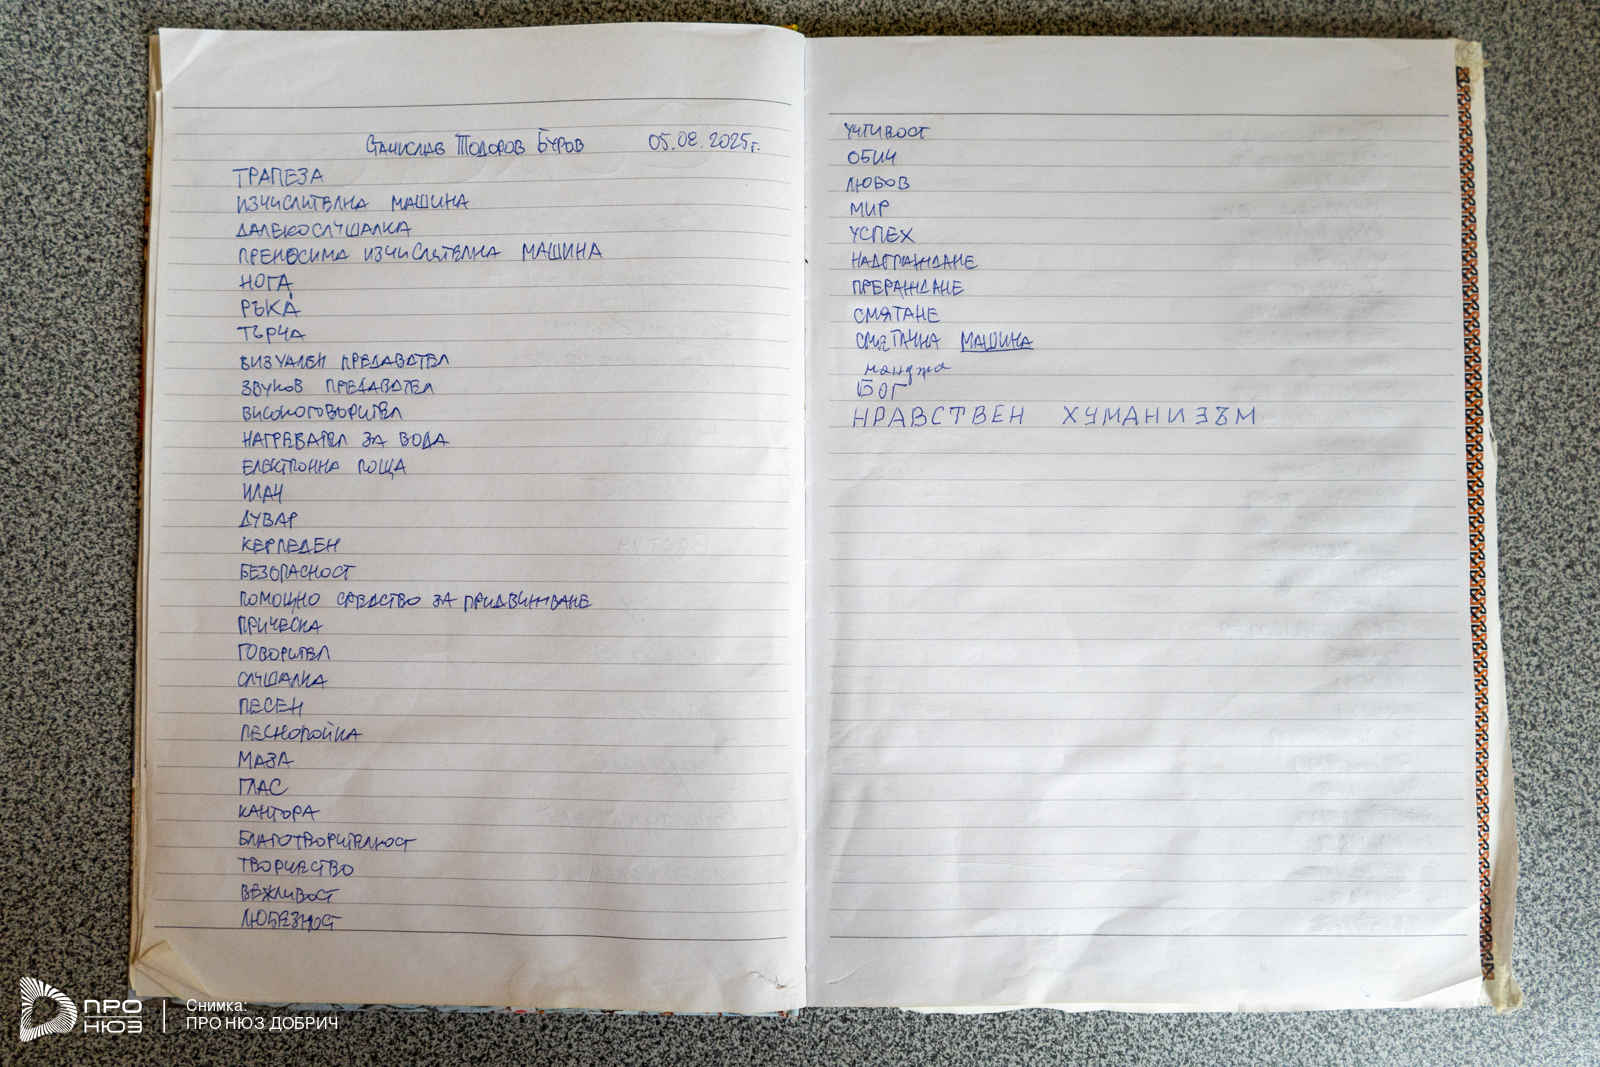 Станислав Тодоров Буров 05.08.2025г.
ТРАПЕЗА
ИЗЧИСЛИТЕЛНА МАШИНА
ДАЛЕКОСЛУШАЛКА
ПРЕНОСИМА ИЗЧИСЛИТЕЛНА МАШИНА
НОГА
РЪКА
ТЪРЧА
ВИЗУАЛЕН ПРЕДАВАТЕЛ
ЗВУКОВ ПРЕДАВАТЕЛ
ВИСОКОГОВОРИТЕЛ
НАГРЕВАТЕЛ ЗА ВОДА
ЕЛЕКТРОННА ПОЩА
ИЛАЧ
ДУВАР
КЕРПЕДЕН
БЕЗОПАСНОСТ
ПОМОЩНО СРЕДСТВО ЗА ПРИДВИЖВАНЕ
ПРИЧЕСКА
ГОВОРИТЕЛ
СЛУШАЛКА
ПЕСЕН
ПЕСНОПОЙКА
МАЗА
ГЛАС
КАНТОРА
БЛАГОТВОРИТЕЛНОСТ
ТВОРЧЕСТВО
ВЕЖЛИВОСТ
ЛЮБЕЗНОСТ
УЧТИВОСТ
ОБИЧ
ЛЮБОВ
МИР
УСПЕХ
НАДГРАЖДАНЕ
ПРЕРАЖДАНЕ
СМЯТАНЕ
СМЕТАЧНА МАШИНА
манджа
БОГ
НРАВСТВЕН ХУМАНИЗЪМ
ПРО НЮЗ
Снимка:
ПРО НЮЗ ДОБРИЧ